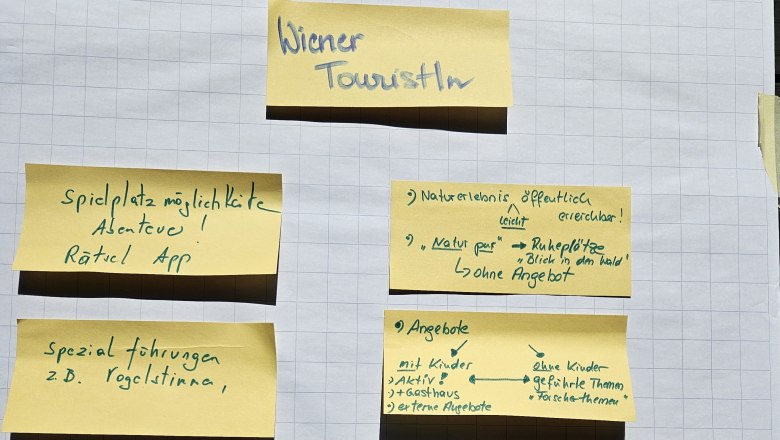 Wiener
TouristIn
Spielplatzmöglichkeite
Abenteuer!
Rätsel App
Naturerlebnis öffentlich
leicht erreichbar!
"Natur pur" → Ruheplätze
"Blick in den Wald"
↳ ohne Angebot
Spezialführungen
z.B. Vogelstimme,
Angebote
mit Kinder
Aktiv!
+ Gasthaus
externe Angebote
↔
ohne Kinder
geführte Themen
"Forscherthemen"